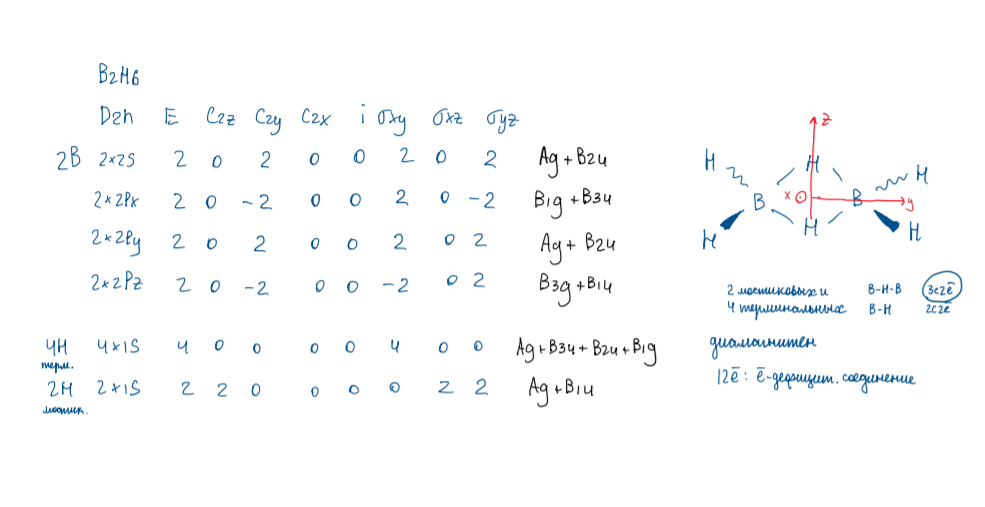 B2H6
D2h E C2z C2y C2x i σxy σxz σyz
2B 2×2S 2 0 2 0 0 2 0 2 Ag+B2u
2×2Px 2 0 -2 0 0 2 0 -2 B1g+B3u
2×2Py 2 0 2 0 0 2 0 2 Ag+B2u
2×2Pz 2 0 -2 0 0 -2 0 2 B3g+B1u
4H 4×1S 4 0 0 0 0 4 0 0 Ag+B3u+B2u+B1g
терм.
2H 2×1S 2 2 0 0 0 0 2 2 Ag+B1u
мостик.
z
H H H
B x B y
H H H
2 мостиковых и B-H-B 3c2ē
4 терминальных B-H 2c2ē
диамагнитен
12ē: ē-дефицит. соединение